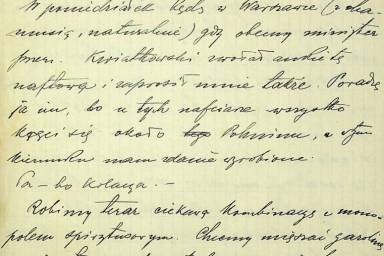 W poniedziałek będę w Warszawie (z ka-
musią, naturalnie) gdy obecny minister
przem. Kwiatkowski zwołał ankietę
naftową i zaprosił mnie także. Poradzę
ja im, bo u tych nafciarzy wszystko
kręci się około Polminu, a w tym
kierunku mam zdanie wyrobione.
Ta - ho kolacja. -
Robimy teraz ciekawą kombinację z mono-
polem spirytusowym. Chcemy mięszać gazolinę